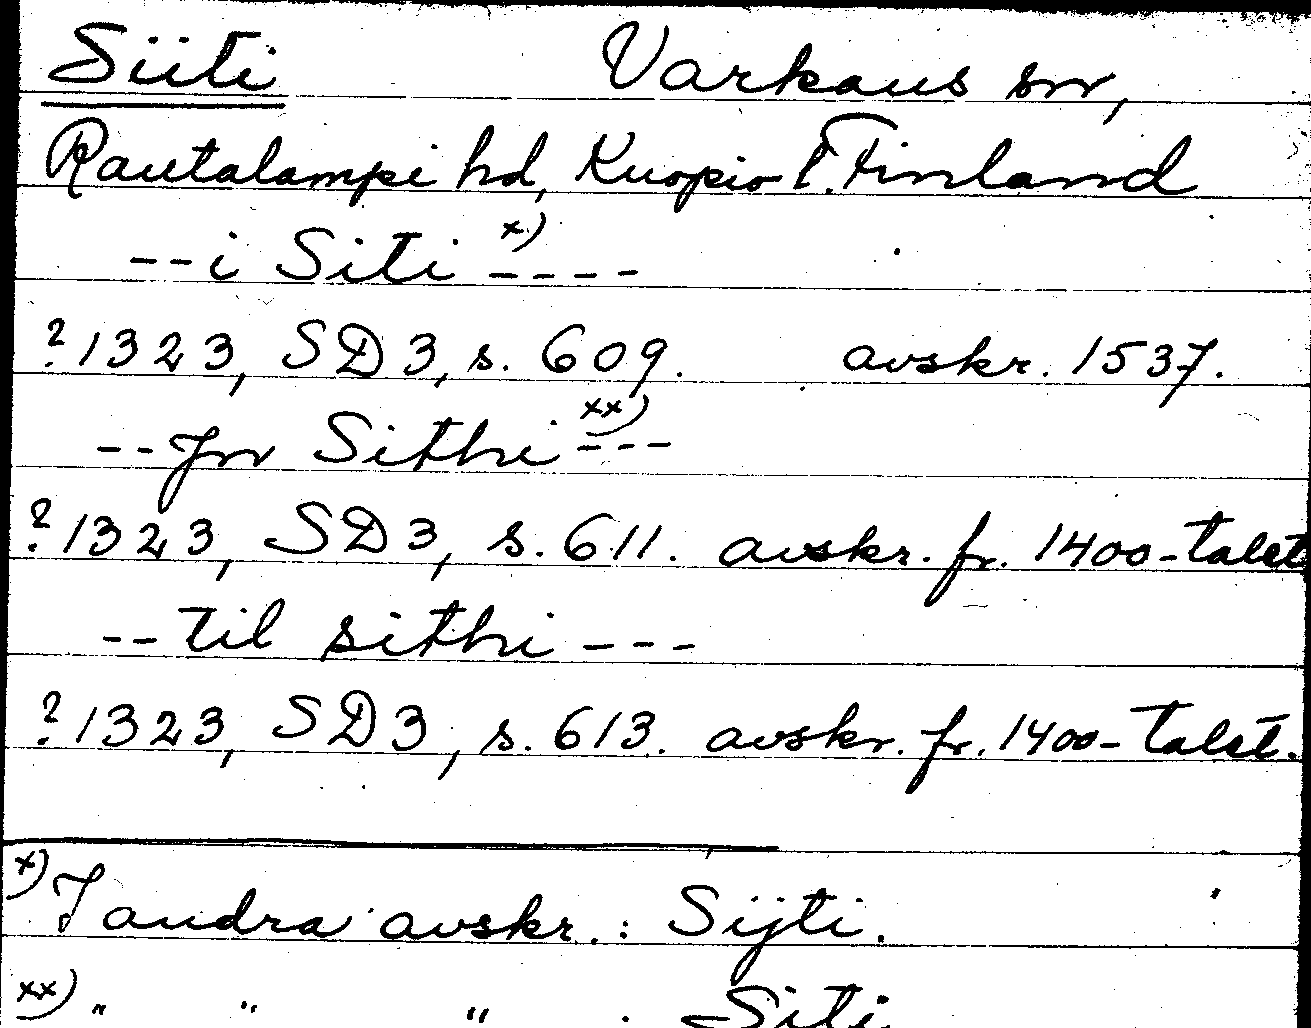 Siiti Varkaus sn,
Rautalampi hd, Kuopio l. Finland
--i Siti x) ----
? 1323, SD3, s. 609. avskr. 1537.
--fm Sithi xx) ---
? 1323, SD3, s. 611. avskr. fr. 1400-talet
--til sithi ---
? 1323, SD3, s. 613. avskr. fr. 1400-talet.
x) I andra avskr.: Sijti.
xx) " " " . Siti